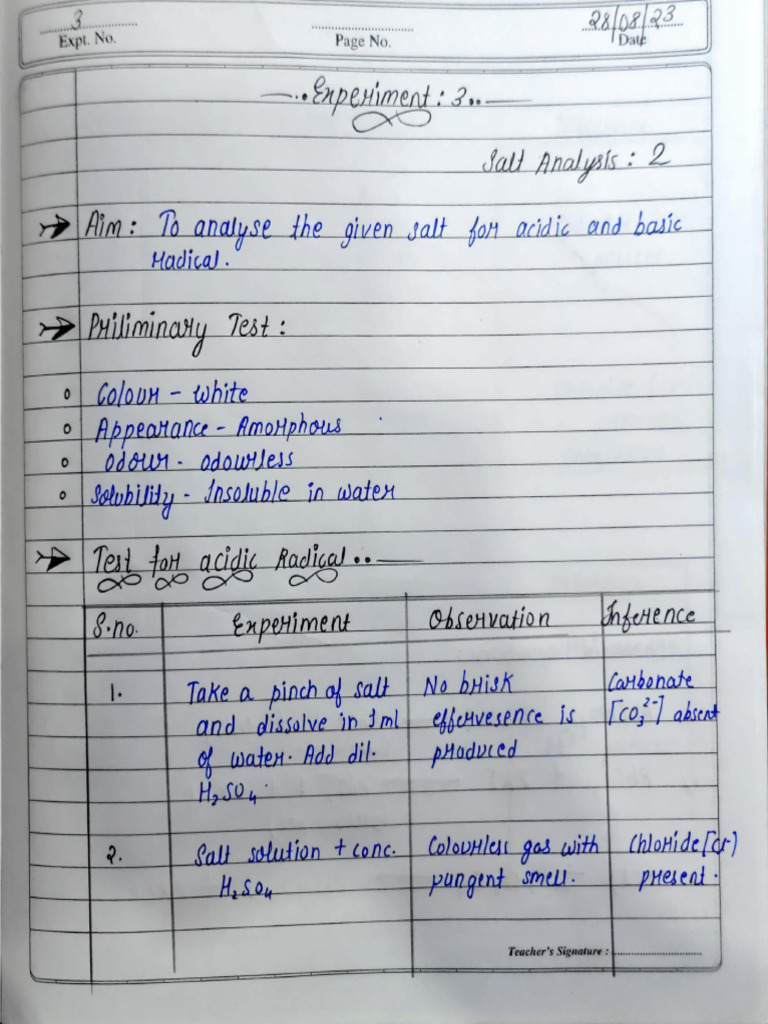 3
28/08/23
Expt. No.
Page No.
Date
Experiment : 3
Salt Analysis : 2
Aim : To analyse the given salt for acidic and basic
radical.
Priliminary Test :
Colour - White
Appearance - Amorphous
Odour - odourless
Solubility - Insoluble in water
Test for acidic Radical
S.no. Experiment Observation Inference
1. Take a pinch of salt No brisk Carbonate
and dissolve in 1 ml effervesence is [CO₃²⁻] absent
of water. Add dil. produced
H₂SO₄.
2. Salt solution + conc. Colourless gas with Chloride [Cl⁻]
H₂SO₄ pungent smell. present.
Teacher's Signature :